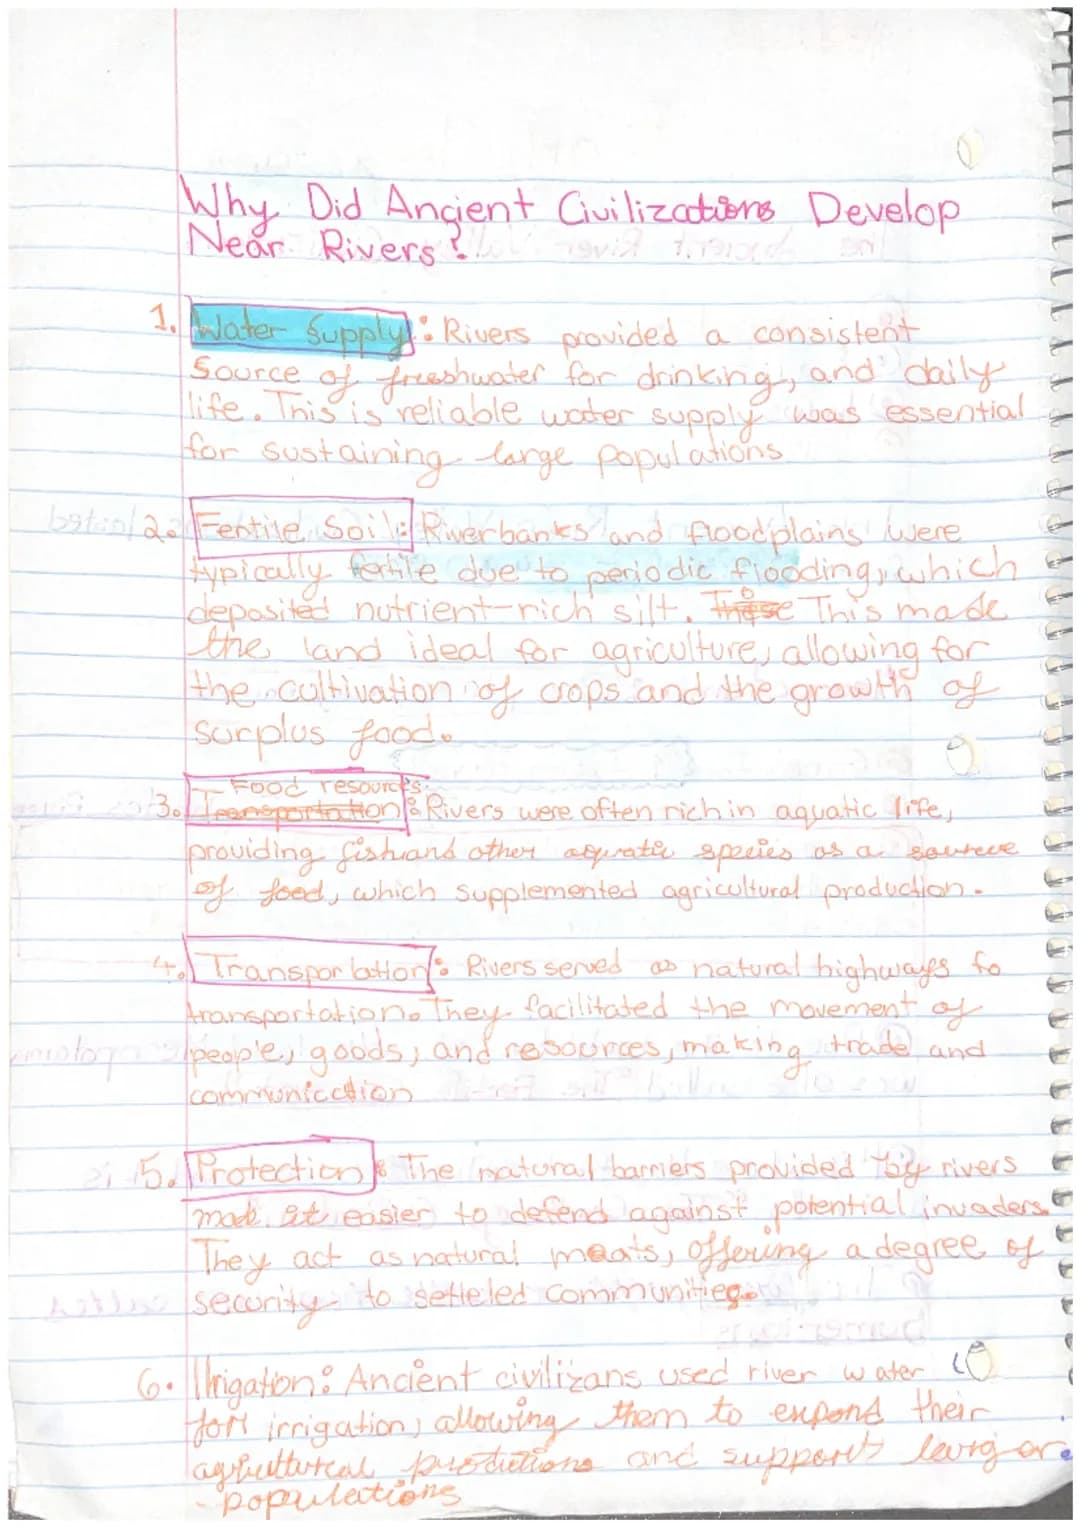 Why Did Ancient Civilizations Develop
Near Rivers?
1. Water Supply: Rivers provided a consistent
Source of freeshwater for drinking, and daily
life. This is reliable water supply was essential
for sustaining large populations
2. Fertile Soil: Riverbanks and floodplains were
typically fertile due to periodic flooding, which
deposited nutrient-rich silt. These This made
the land ideal for agriculture, allowing for
the cultivation of crops and the growth of
surplus food.
Food resources
3. Transportation: Rivers were often rich in aquatic life,
providing fish and other aquatic species as a source
of food, which supplemented agricultural production.
4. Transportation: Rivers served as natural highways fo
transportation. They facilitated the movement of
people, goods, and resources, making trade and
communication
5. Protection: The natural barriers provided by rivers
made it easier to defend against potential invaders.
They act as natural moats, offering a degree of
security to setteled communities.
6. Irrigation: Ancient civilizans used river water
for irrigation, allowing them to expand their
agricultural productions and support larger
populations